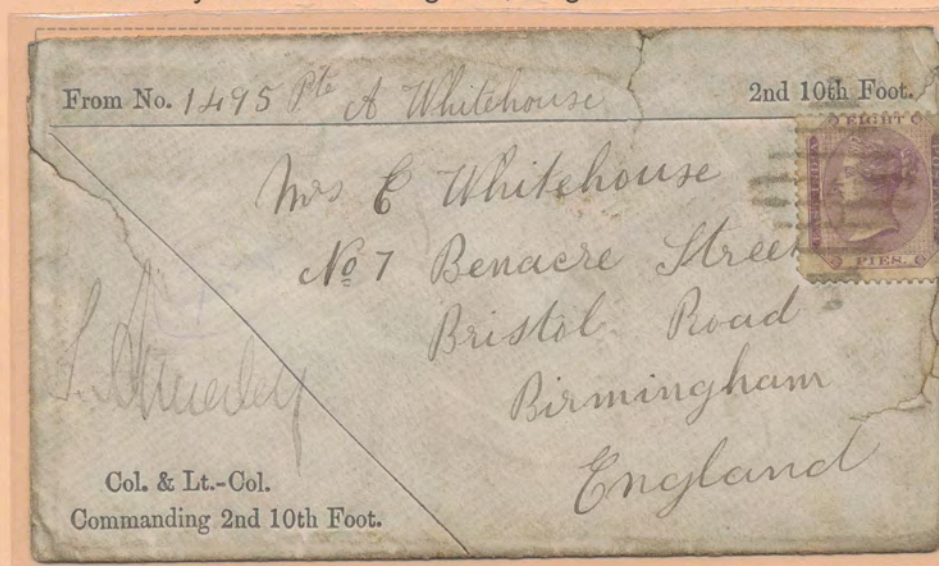 From No. 1495 Pte A Whitehouse 2nd 10th Foot.
EIGHT
PIES.
Mrs E Whitehouse
No 7 Benacre Street
Bristol Road
Birmingham
England
Col. & Lt.-Col.
Commanding 2nd 10th Foot.